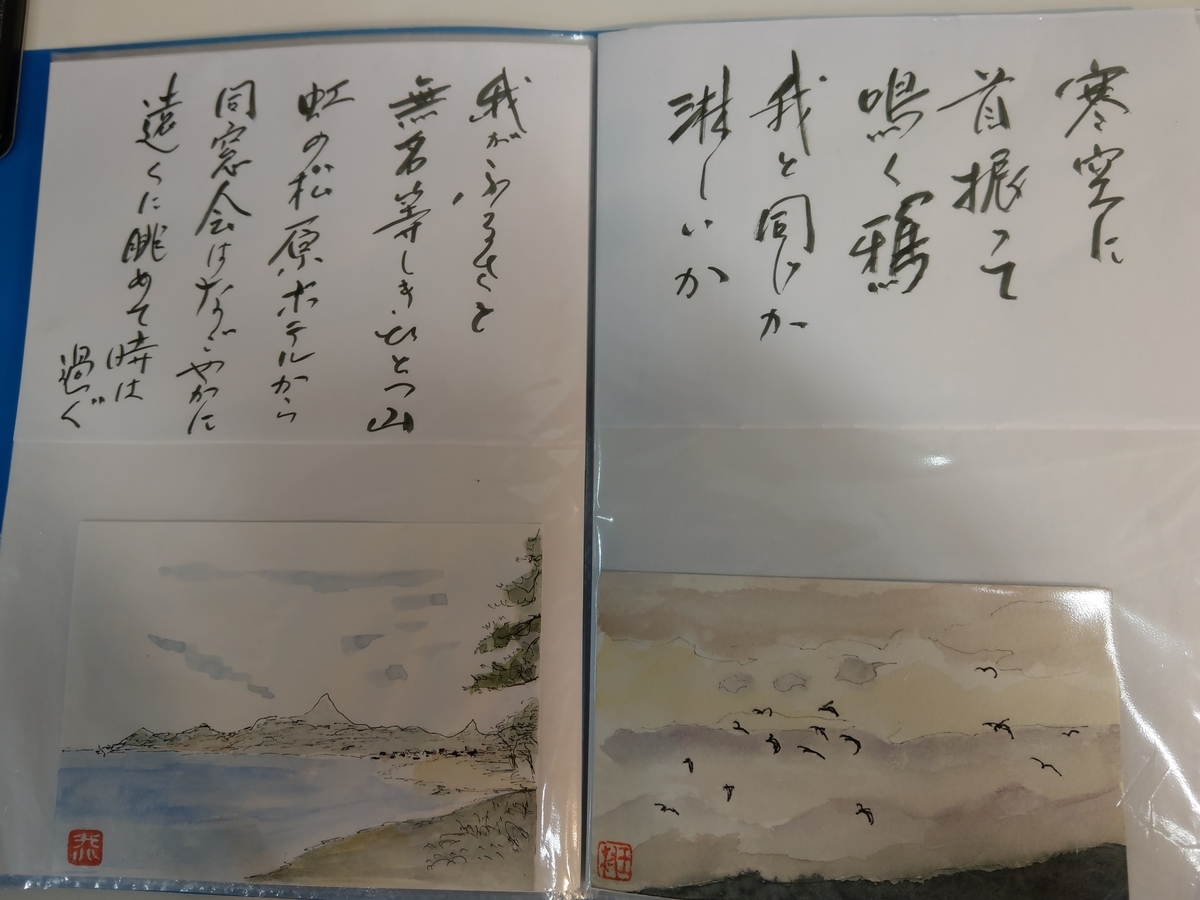 寒空に
首振って
鳴く鴉
我と同じか
淋しいか
我がふるさと
無名等しきひとつ山
虹の松原ホテルから
同窓会はなごやかに
遠くに眺めて時は
過ぐ